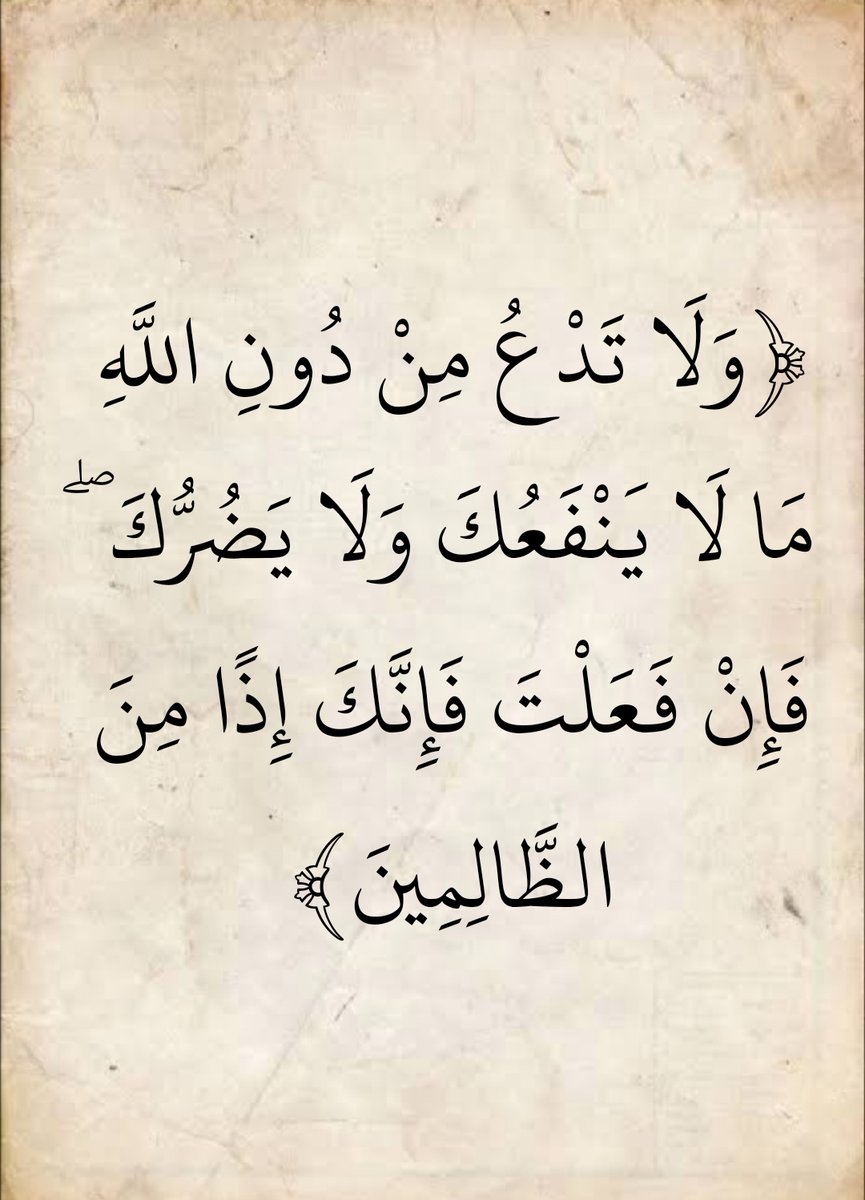 ﴿وَلَا تَدْعُ مِنْ دُونِ اللَّهِ
مَا لَا يَنْفَعُكَ وَلَا يَضُرُّكَ ۖ
فَإِنْ فَعَلْتَ فَإِنَّكَ إِذًا مِنَ
الظَّالِمِينَ﴾